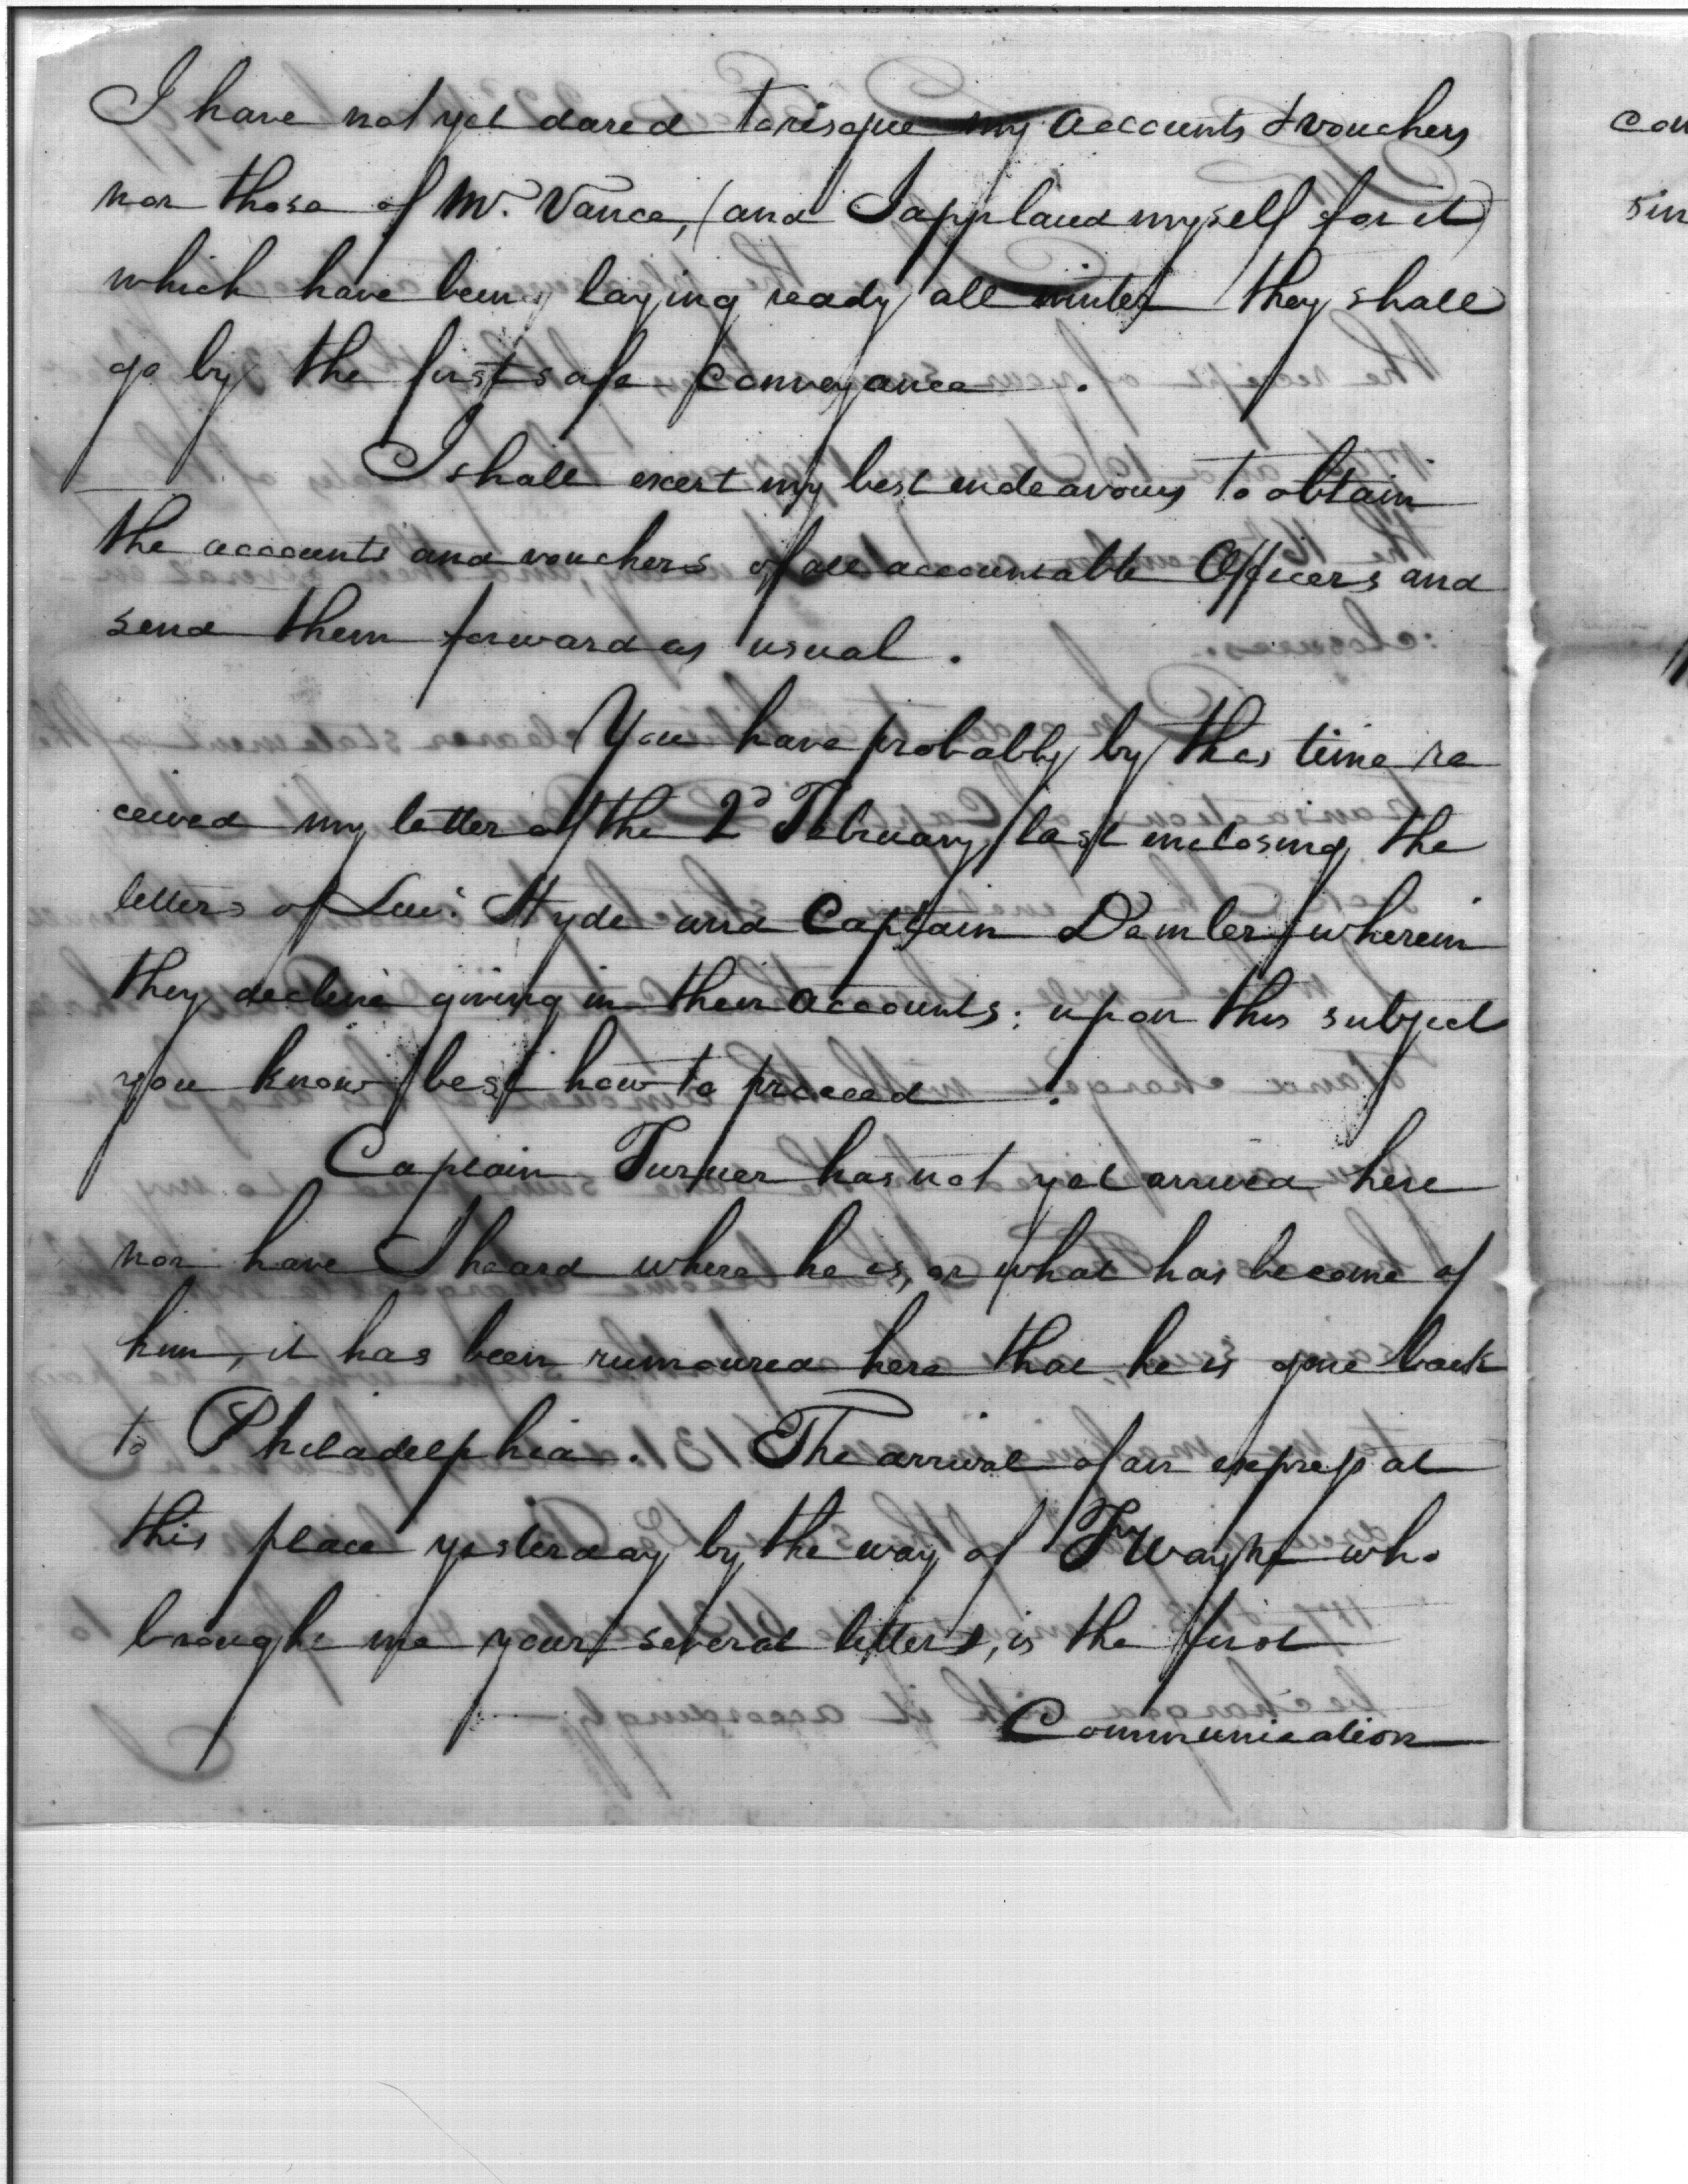 I have not yet dared to risque my accounts & vouchers
nor those of Mr. Vance, (and I applaud myself for it)
which have been laying ready all winter they shall
go by the first safe conveyance.
I shall exert my best endeavours to obtain
the accounts and vouchers of all accountable Officers and
send them forward as usual.
You have probably by this time re
ceived my letter of the 2d February last enclosing the
letters of Lieut. Hyde and Captain Demler wherein
they decline giving in their accounts; upon this subject
you know best how to proceed.
Captain Turner has not yet arrived here
nor have I heard where he is, or what has become of
him, it has been rumoured here that he is gone back
to Philadelphia. The arrival of an express at
this place yesterday by the way of Ft Wayne who
brought me your several letters, is the first
Communication